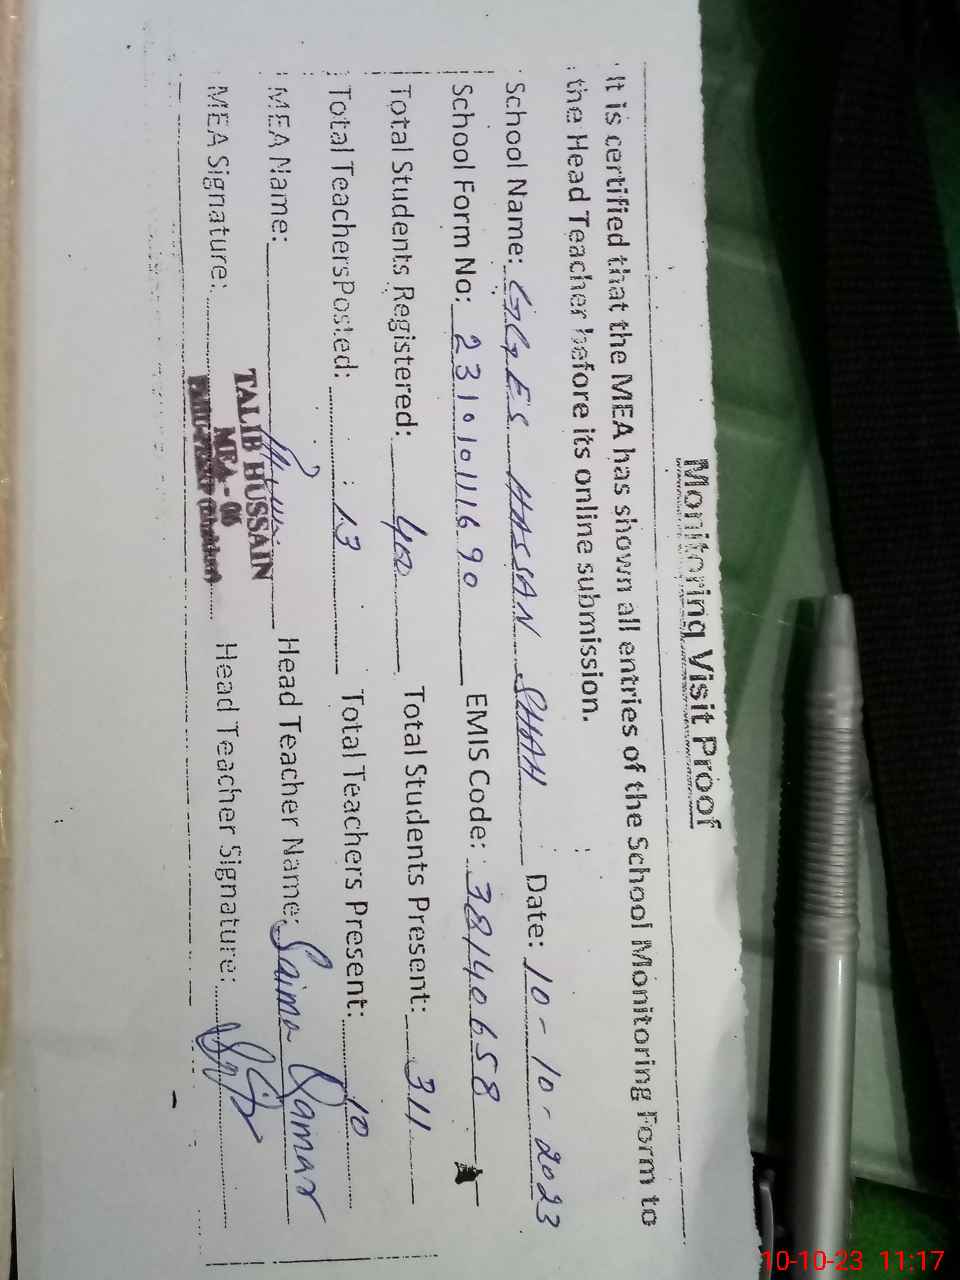 Monitoring Visit Proof
It is certified that the MEA has shown all entries of the School Monitoring Form to
the Head Teacher before its online submission.
School Name: GGES HASSAN SHAH Date: 10-10-2023
School Form No: 231010111690 EMIS Code: 38140658
Total Students Registered: 400 Total Students Present: 311
Total TeachersPosted: 13 Total Teachers Present: 10
MEA Name: Head Teacher Name: Saima Qamar
TALIB HUSSAIN
MEA - 06
MEA Signature: Head Teacher Signature:
10-10-23 11:17